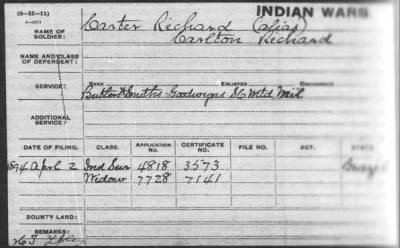 (3-31-11)
INDIAN WARS
NAME OF SOLDIER: Carter Richard (alias)
Carlton Richard
NAME AND CLASS OF DEPENDENT:
SERVICE: RANK ENLISTED DISCHARGED
Button & Smiths Goodwyns SC Mtd Mil
ADDITIONAL SERVICE:
DATE OF FILING. CLASS. APPLICATION No. CERTIFICATE No. FILE No. ACT. STATE
1894 April 2 Ind Sur 4818 3573
Widow 7728 7141
BOUNTY LAND:
REMARKS: